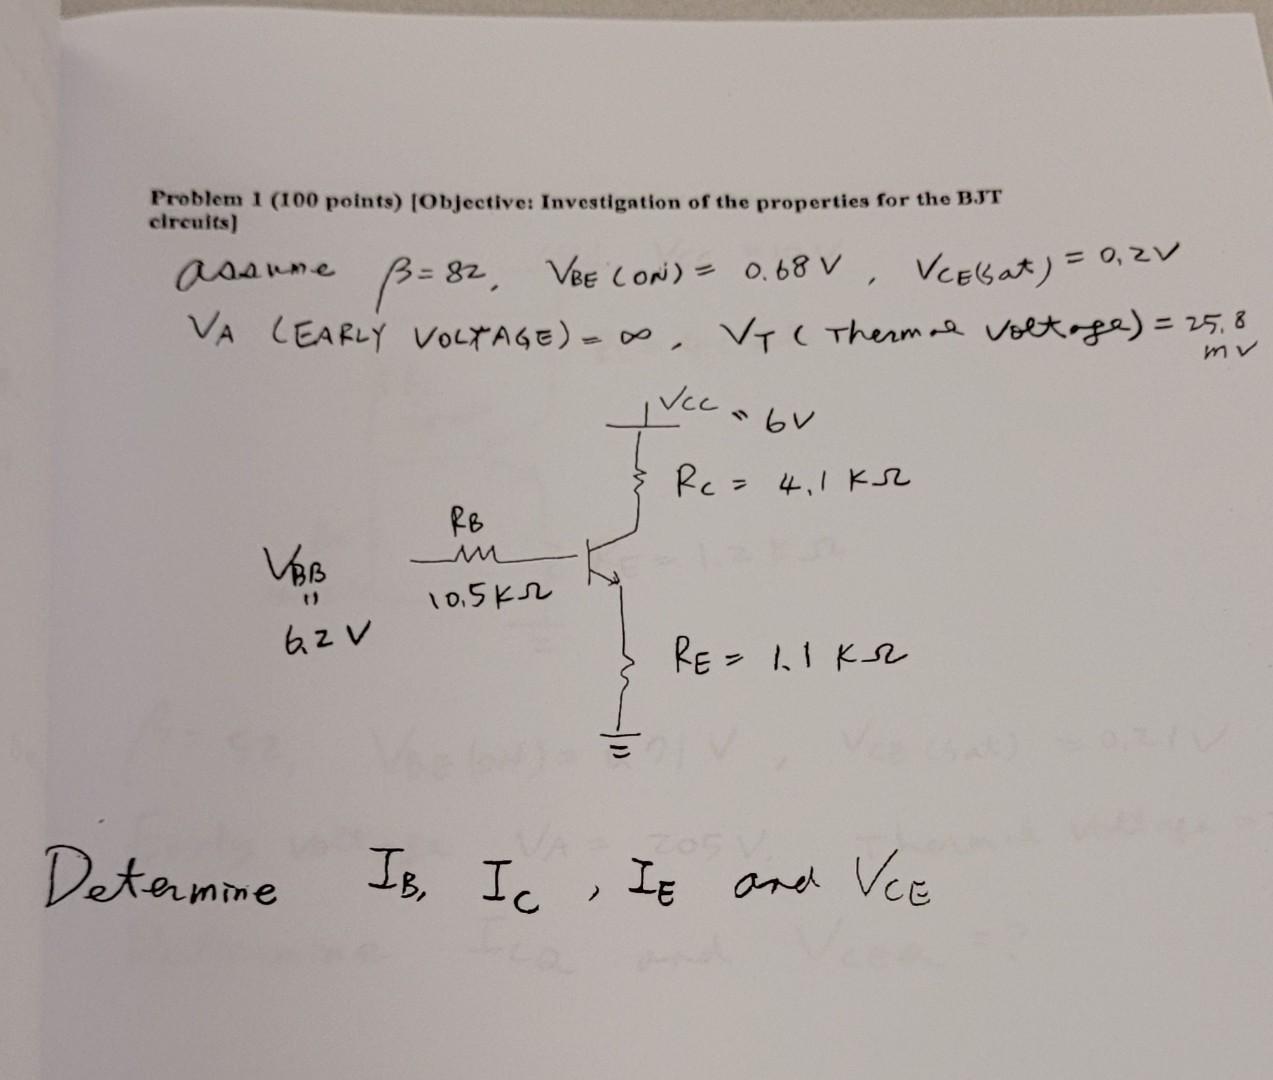 Problem 1 (100 points) [Objective: Investigation of the properties for the BJT
circuits]
assume β = 82, VBE (ON) = 0.68 V, VCE(sat) = 0.2V
VA (EARLY VOLTAGE) = ∞, VT (Thermal Voltage) = 25.8
mV
VCC = 6V
RC = 4.1 KΩ
RB
VBB
10.5KΩ
=
6.2 V
RE = 1.1 KΩ
Determine IB, IC, IE and VCE